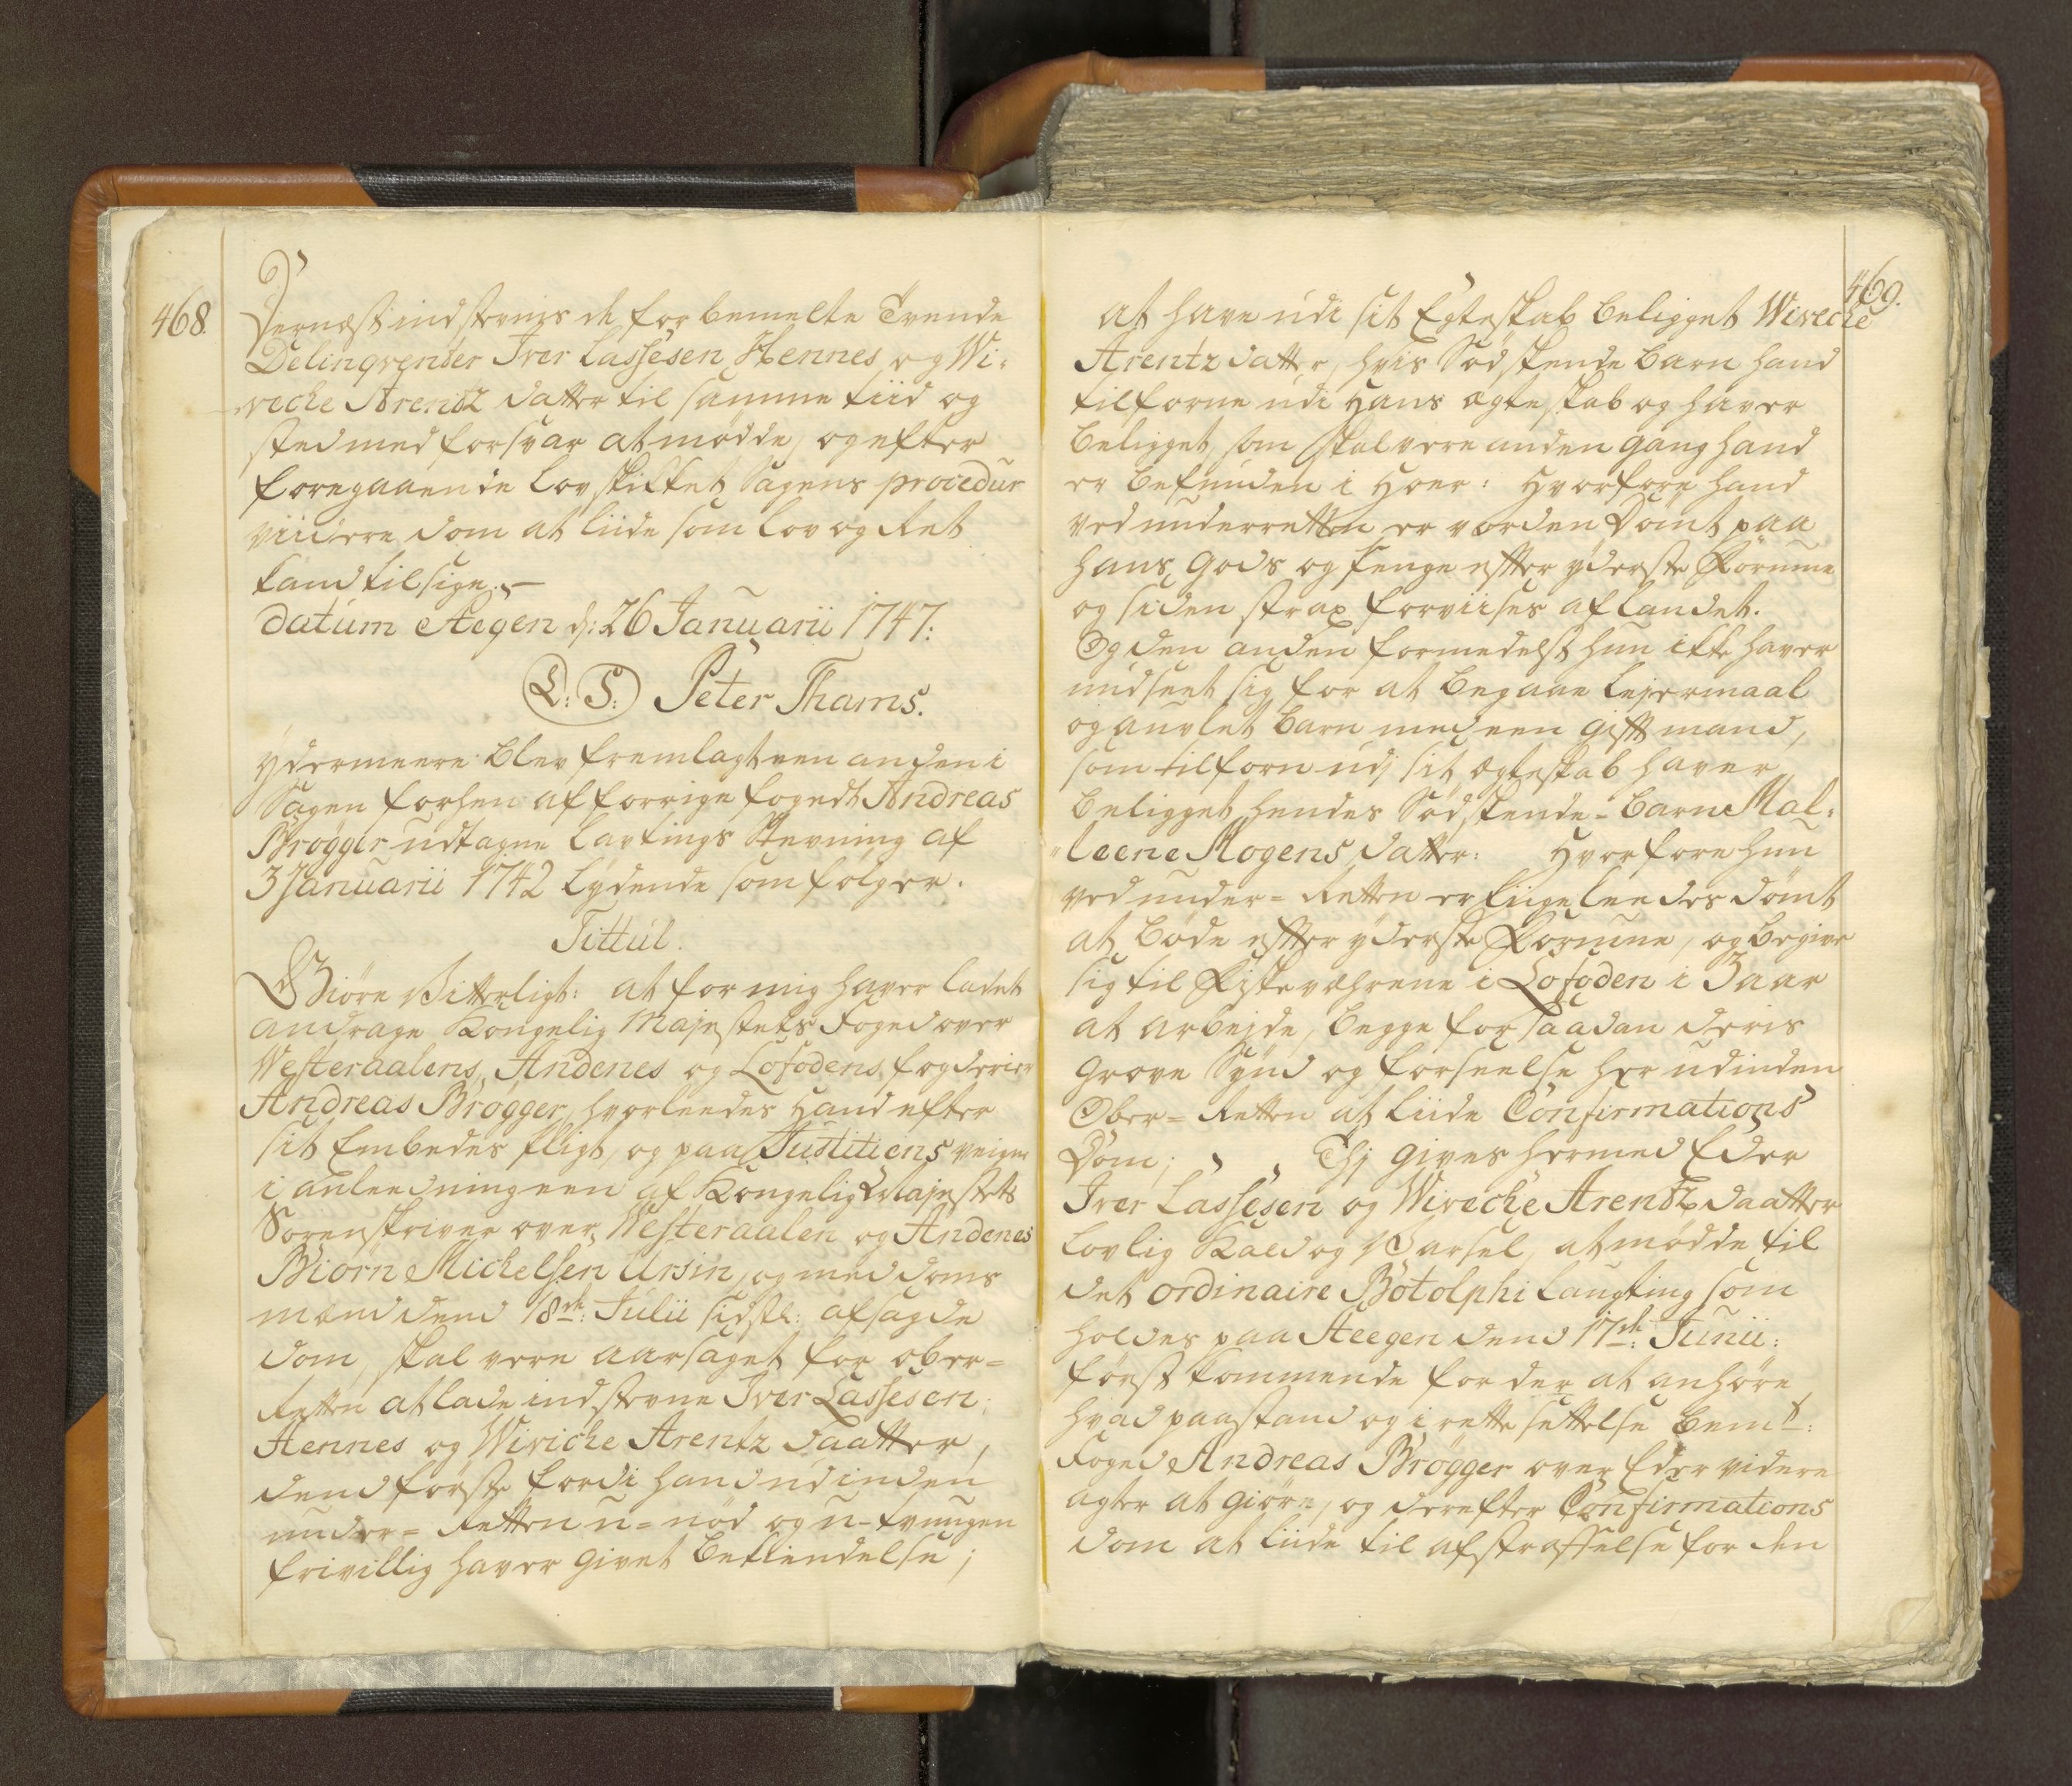 468.
Dernæst indstevnes de forbemelte Tvende
Delinqventer Iver Lassesen Hennes og Wi-
veche Arentz datter til samme tiid og
sted med forsvar at mødde, og efter
foregaaende lovskikket Sagens procedur
viidere dom at liide som lov og Ret
kand tilsige.
datum Stegen d: 26 Januarii 1747:
L: S: Peter Thams.
Ydermeere blev fremlagt een anden i
Sagen forhen af forrige fogedt Andreas
Brøgger udtagne lavtings Stevning af
3 Januarii 1742 lydende som følger.
Tittul.
Giøre Vitterligt: at for mig haver ladet
andrage Kongelig Majestets foged over
Westeraalens, Andenes og Lofodens fogderier
Andreas Brøgger, hvorleedes hand efter
sit Embedes pligt, og paa Justitiens veigne
i anleedning een af Kongelig Majestets
Sorenskriver over Westeraalen og Andenes
Biørn Michelsen Ursin, og med doms
mænd dend 18de: Julii sidstl: afsagde
dom, skal være aarsaget for ober-
Retten at lade indstevne Iver Lassesøn
Hennes og Wiviche Arentz daatter,
dend første fordi hand udinden
under-Retten u-nød og u-tvungen
frivillig haver givet bekiendelse;
469.
at have udi sit Egteskab beligget Wiveche
Arentz datter, hvis Sødskende barn hand
tilforne udi hans ægteskab og haver
beligget, som skal være anden gang hand
er befunden i hoer: hvorfore hand
ved underretten er vorden dømt paa
hans gods og penge efter yderste formue
og siden strax forviises af landet.
Og den anden formedelst hun ikke haver
undseet sig for at begaae lejermaal
og auvlet barn med een gift mand,
som tilforn udj sit ægteskab haver
beligget hendes Sødskende-barn Mal-
leene Mogens datter: hvorfore hun
ved under-Retten er liigeleedes dømt
at bøde efter yderste formue, og begive
sig til fiskeværene i Lofoden i 3 aar
at arbejde, begge for saadan deris
grove Synd og forseelse her udinden
Ober-Retten at liide Confirmations
Dom; Thj gives hermed Eder
Iver Lassesen og Wiveche Arentz daatter
lovlig Kald og Varsel, at mødde til
det ordinaire Botolphi laugting som
holdes paa Steegen dend 17de: Junii:
først kommende for der at anhøre
hvad paastand og i rette settelse bemte:
foged Andreas Brøgger over Eder videre
agter at giøre, og derefter Confirmations
dom at liide til afstraffelse for den